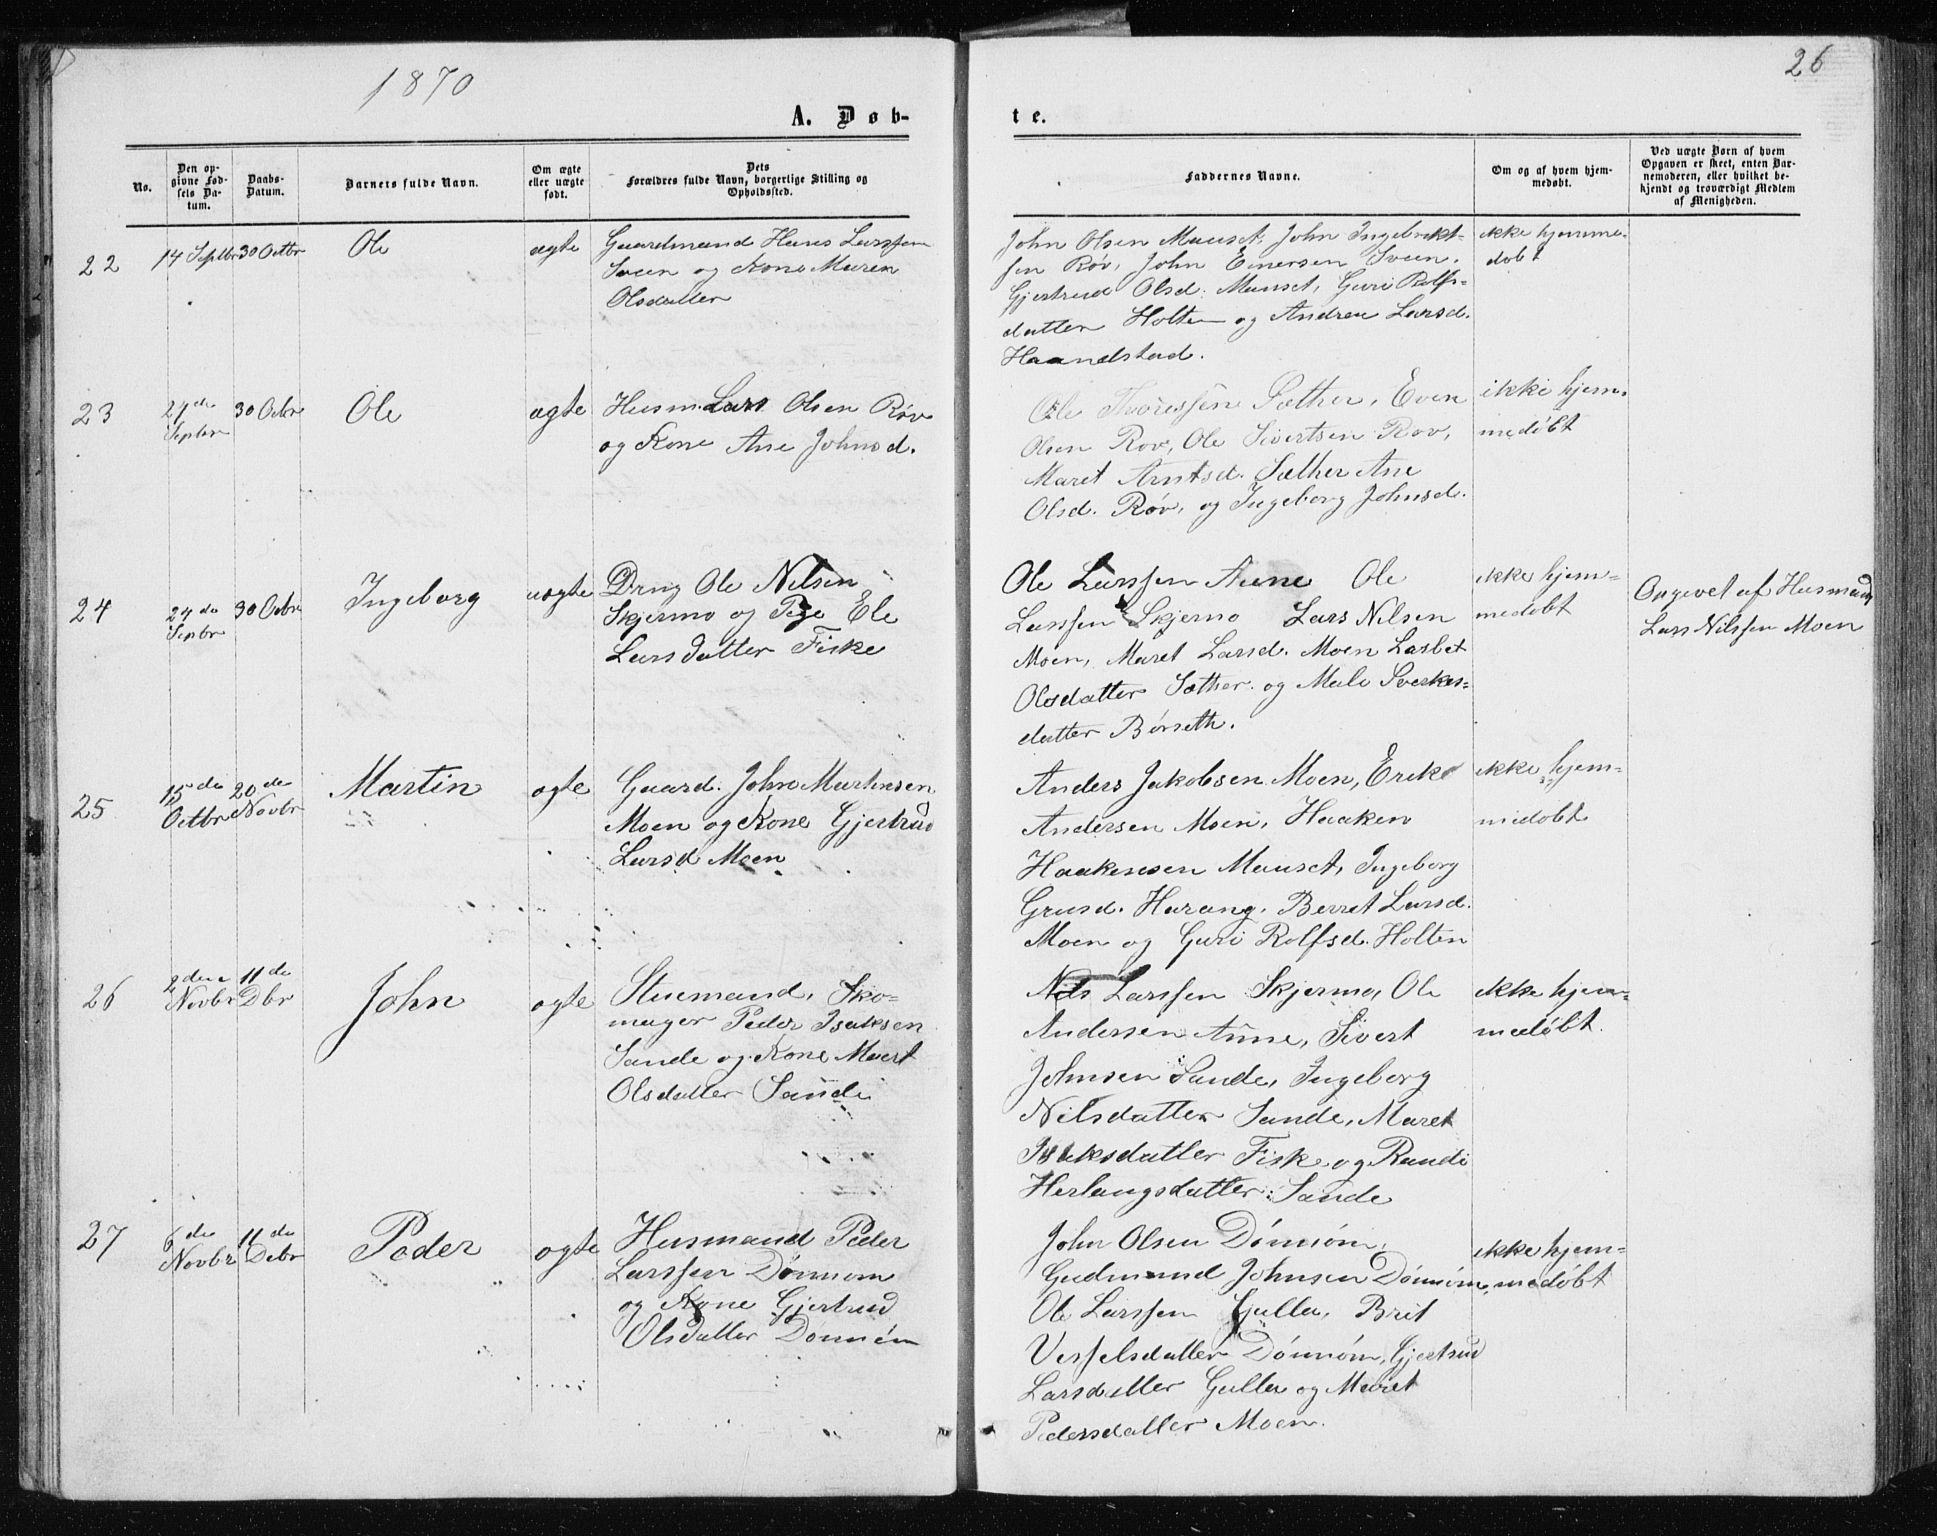 1870
26
A. Døb-
te.
No.
Den op-
givne Fød-
sels Da-
tum.
Daabs-
Datum.
Barnets fulde Navn.
Om ægte
eller uægte
født.
Dets
Forældres fulde Navn, borgerlige Stilling og
Opholdssted.
Faddernes Navne.
Om og af hvem hjem-
medøbt.
Ved uægte Børn af hvem
Opgaven er skeet, enten Bar-
nemoderen, eller hvilket be-
kjendt og troværdigt Medlem
af Menigheden.
22
14 Septbr
30 Octbr
Ole
ægte
Gaardmand Hans Larssen
Sveen og Kone Maren
Olsdatter
John Olsen Mauset, John Ingebrikt-
sen Røv, John Einersen Sveen.
Gjertrud Olsd. Mauset, Guri Rolfs-
datter Holten og Andrea Larsd.
Haandstad.
ikke hjemme-
døbt
23
Septbr
30 Octbr
Ole
ægte
Husm. Lars Olsen Røv
og Kone Ane Johnsd.
Ole Thoressen Sæther, Even
Olsen Røv, Ole Sivertsen Røv,
Maret Arntsd. Sæther Ane
Olsd. Røv, og Ingeborg Johnsd.
ikke hjem-
medøbt
24
24de
Septbr
30 Octbr
Ingeborg
uægte
Dreng Ole Nilsen
Skjermo og Pige Ele
Larsdatter Fiske
Ole Larssen Aune Ole
Larssen Skjermo Lars Nilsen
Moen, Maret Larsd. Moen Lasbet
Olsdatter Sæther og Mali Sverkes-
datter Børseth.
ikke hjem-
medøbt
Opgivet af Husmand
Lars Nilssen Moen
25
15de
Octbr
20de
Novbr
Martin
ægte
Gaard. John Martinsen
Moen og Kone Gjertrud
Larsd Moen
Anders Jakobsen Moen, Erik
Andersen Moen, Haaken
Haakensen Mauset, Ingeborg
Harang, Berret Larsd.
Moen og Guri Rolfsd. Holten
ikke hjem-
medøbt
26
2den
Novbr
11de
Dbr
John
ægte
Stuemand, Sko-
mager Peder Isaksen
Sande og Kone Maret
Olsdatter Sande
Nils Larssen Skjermo, Ole
Andersen Aune, Sivert
Johnsen Sande, Ingeborg
Nilsdatter Sande, Maret
Isaksdatter Fiske og Randi
Herlaugsdatter Sande
ikke hjem-
medøbt.
27
6de
Novbr
11de
Debr
Peder
ægte
Husmand Peder
Larssen Dønnøm
og Kone Gjertrud
Olsdatter Dønnøm
John Olsen Dønnøm,
Gudmund Johnsen Dønnøm,
Ole Larssen Gulla, Brit
Vesselsdatter Dønnøm, Gjertrud
Larsdatter Gulla og Maret
Pedersdatter Moen.
ikke hjem-
medøbt